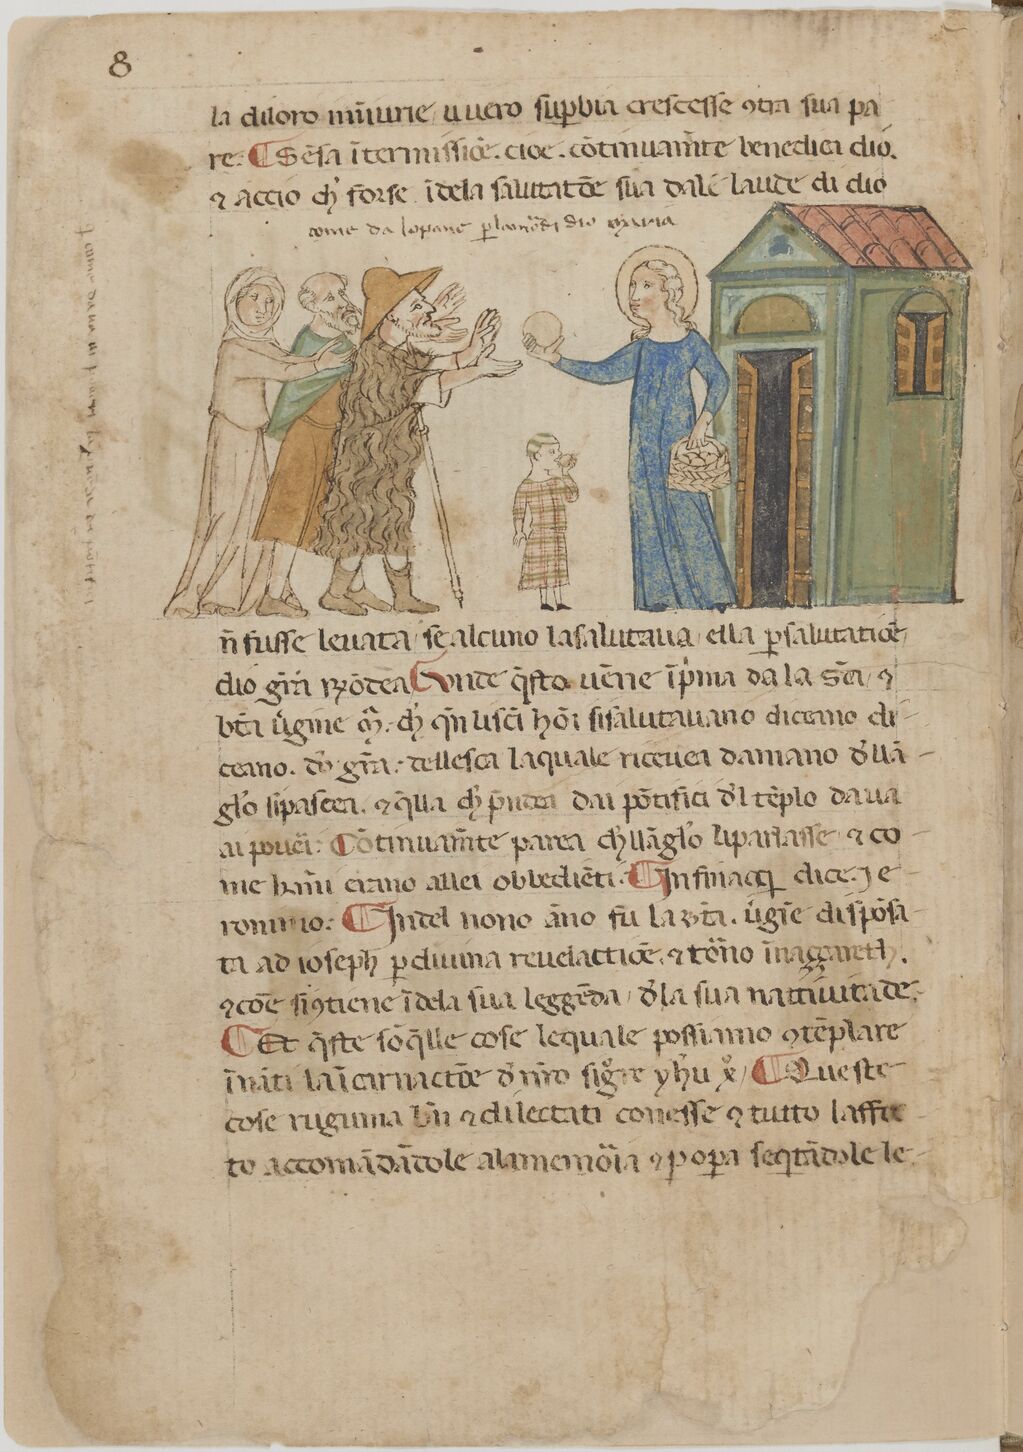 8
la diloro iniurie / uuero suꝑbia crescesse ꝯtra sua pa
re. Sẽsa ĩtermissiõe. cioe. cõtinuam̃te benedicia dio.
⁊ accio ch' forse ĩdela salutatiõe sua dale laude di dio
come da lopane ꝑ lamor di dio maria
nõ fusse leuata / se alcuno lasalutaua / ella ꝑ salutatiõe
dio grã rñdea Onde q̃sto uẽne ĩprima da la Sc̃a / ⁊
bt̃a ũgine M̃. ch' qñ lisc̃i hoĩ sisalutauano diceano di
ceano. dõ gr̃a. dellesca laquale riceuea damano d'llã
glõ sipascea. ⁊ q̃lla ch' p̃ndea dai põtifici d'l tẽplo daua
ai poueri. Cõtinuam̃te parea ch' llãglõ liparlasse ⁊ co
me erano allei obbediẽti. Infinacq̃ dice. Je
ronimo. Indel nono ãno fu la bt̃a. ũgĩe dispõsa
ta ad ioseph ꝑ diuina reuelactiõe. ⁊ torno ĩnaççareth.
⁊ cõe siꝯtiene ĩdela sua leggẽda / d'la sua natiuitade.
Et q̃ste sõ q̃lle cose lequale possiamo ꝯtẽplare
ĩnãti laĩcarnactiõe d' nr̃o sigr̃e yhu x̃. / Queste
cose ruguma bñ ⁊ dilectati conesse ꝯ tutto laffec
to accomãdãdole alamemoria ⁊ ꝑ oꝑa seq̃tãdole le